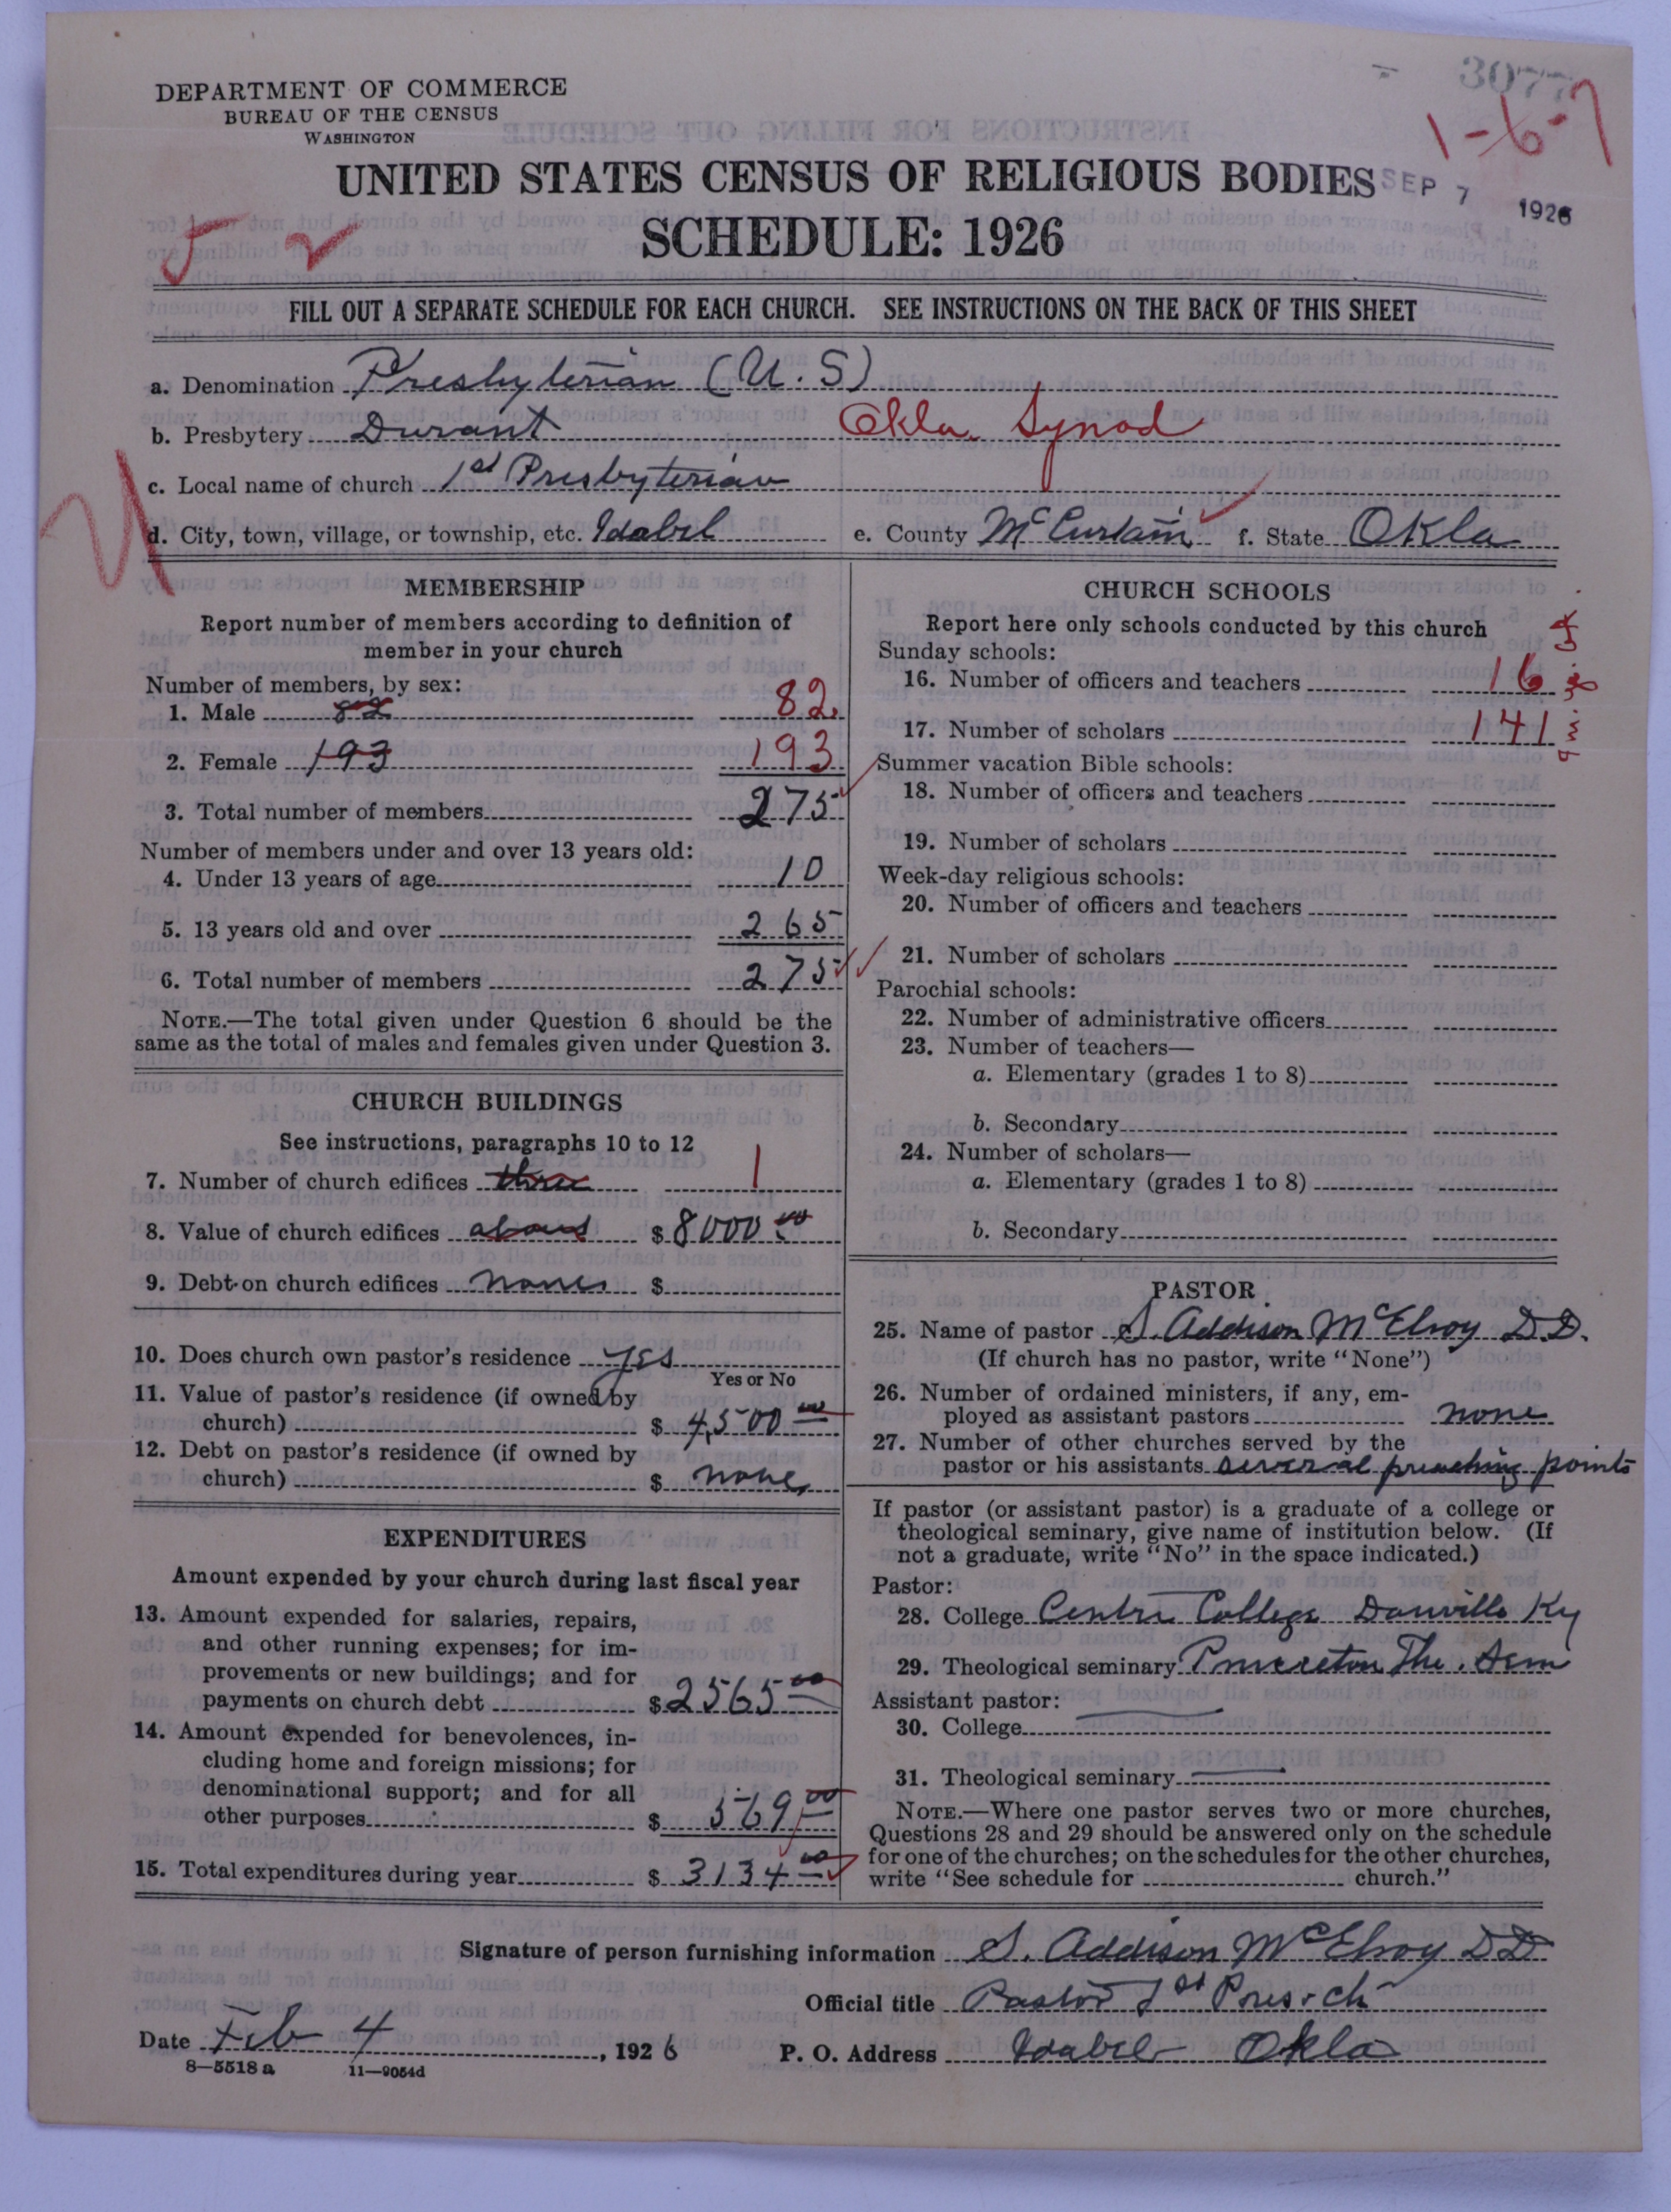 3077
1-6-7
DEPARTMENT OF COMMERCE
BUREAU OF THE CENSUS
WASHINGTON
UNITED STATES CENSUS OF RELIGIOUS BODIES
SEP 7 1926
SCHEDULE: 1926
5 2
FILL OUT A SEPARATE SCHEDULE FOR EACH CHURCH. SEE INSTRUCTIONS ON THE BACK OF THIS SHEET
a. Denomination Presbyterian (U.S)
b. Presbytery Durant Okla. Synod
c. Local name of church 1st Presbyterian
d. City, town, village, or township, etc. Idabel e. County McCurtain f. State Okla
MEMBERSHIP
Report number of members according to definition of
member in your church
Number of members, by sex:
1. Male 82 82
2. Female 193 193
3. Total number of members 275
Number of members under and over 13 years old:
4. Under 13 years of age 10
5. 13 years old and over 265
6. Total number of members 275
NOTE.—The total given under Question 6 should be the
same as the total of males and females given under Question 3.
CHURCH BUILDINGS
See instructions, paragraphs 10 to 12
7. Number of church edifices three 1
8. Value of church edifices about $ 8000 00
9. Debt on church edifices none $
10. Does church own pastor's residence yes
Yes or No
11. Value of pastor's residence (if owned by
church) $ 4,500 00
12. Debt on pastor's residence (if owned by
church) $ none
EXPENDITURES
Amount expended by your church during last fiscal year
13. Amount expended for salaries, repairs,
and other running expenses; for im-
provements or new buildings; and for
payments on church debt $ 2565 00
14. Amount expended for benevolences, in-
cluding home and foreign missions; for
denominational support; and for all
other purposes $ 569 00
15. Total expenditures during year $ 3134 00
CHURCH SCHOOLS
Report here only schools conducted by this church
Sunday schools:
16. Number of officers and teachers 16
17. Number of scholars 141
Summer vacation Bible schools:
18. Number of officers and teachers
19. Number of scholars
Week-day religious schools:
20. Number of officers and teachers
21. Number of scholars
Parochial schools:
22. Number of administrative officers
23. Number of teachers—
a. Elementary (grades 1 to 8)
b. Secondary
24. Number of scholars—
a. Elementary (grades 1 to 8)
b. Secondary
PASTOR
25. Name of pastor S. Addison McElroy D.D.
(If church has no pastor, write "None")
26. Number of ordained ministers, if any, em-
ployed as assistant pastors none
27. Number of other churches served by the
pastor or his assistants several preaching points
If pastor (or assistant pastor) is a graduate of a college or
theological seminary, give name of institution below. (If
not a graduate, write "No" in the space indicated.)
Pastor:
28. College Centre College Danville Ky
29. Theological seminary Princeton The. Sem
Assistant pastor:
30. College
31. Theological seminary
NOTE.—Where one pastor serves two or more churches,
Questions 28 and 29 should be answered only on the schedule
for one of the churches; on the schedules for the other churches,
write "See schedule for church."
Signature of person furnishing information S. Addison McElroy DD
Official title Pastor 1st Pres. ch
Date Feb 4, 1926 P. O. Address Idabel Okla
8—5518 a 11—9054d